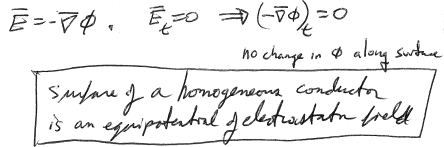 Ē = -∇̄ϕ . Ē_t = 0 ⇒ (-∇̄ϕ)_t = 0
no change in ϕ along surface
surface of a homogeneous conductor
is an equipotential of electrostatic field